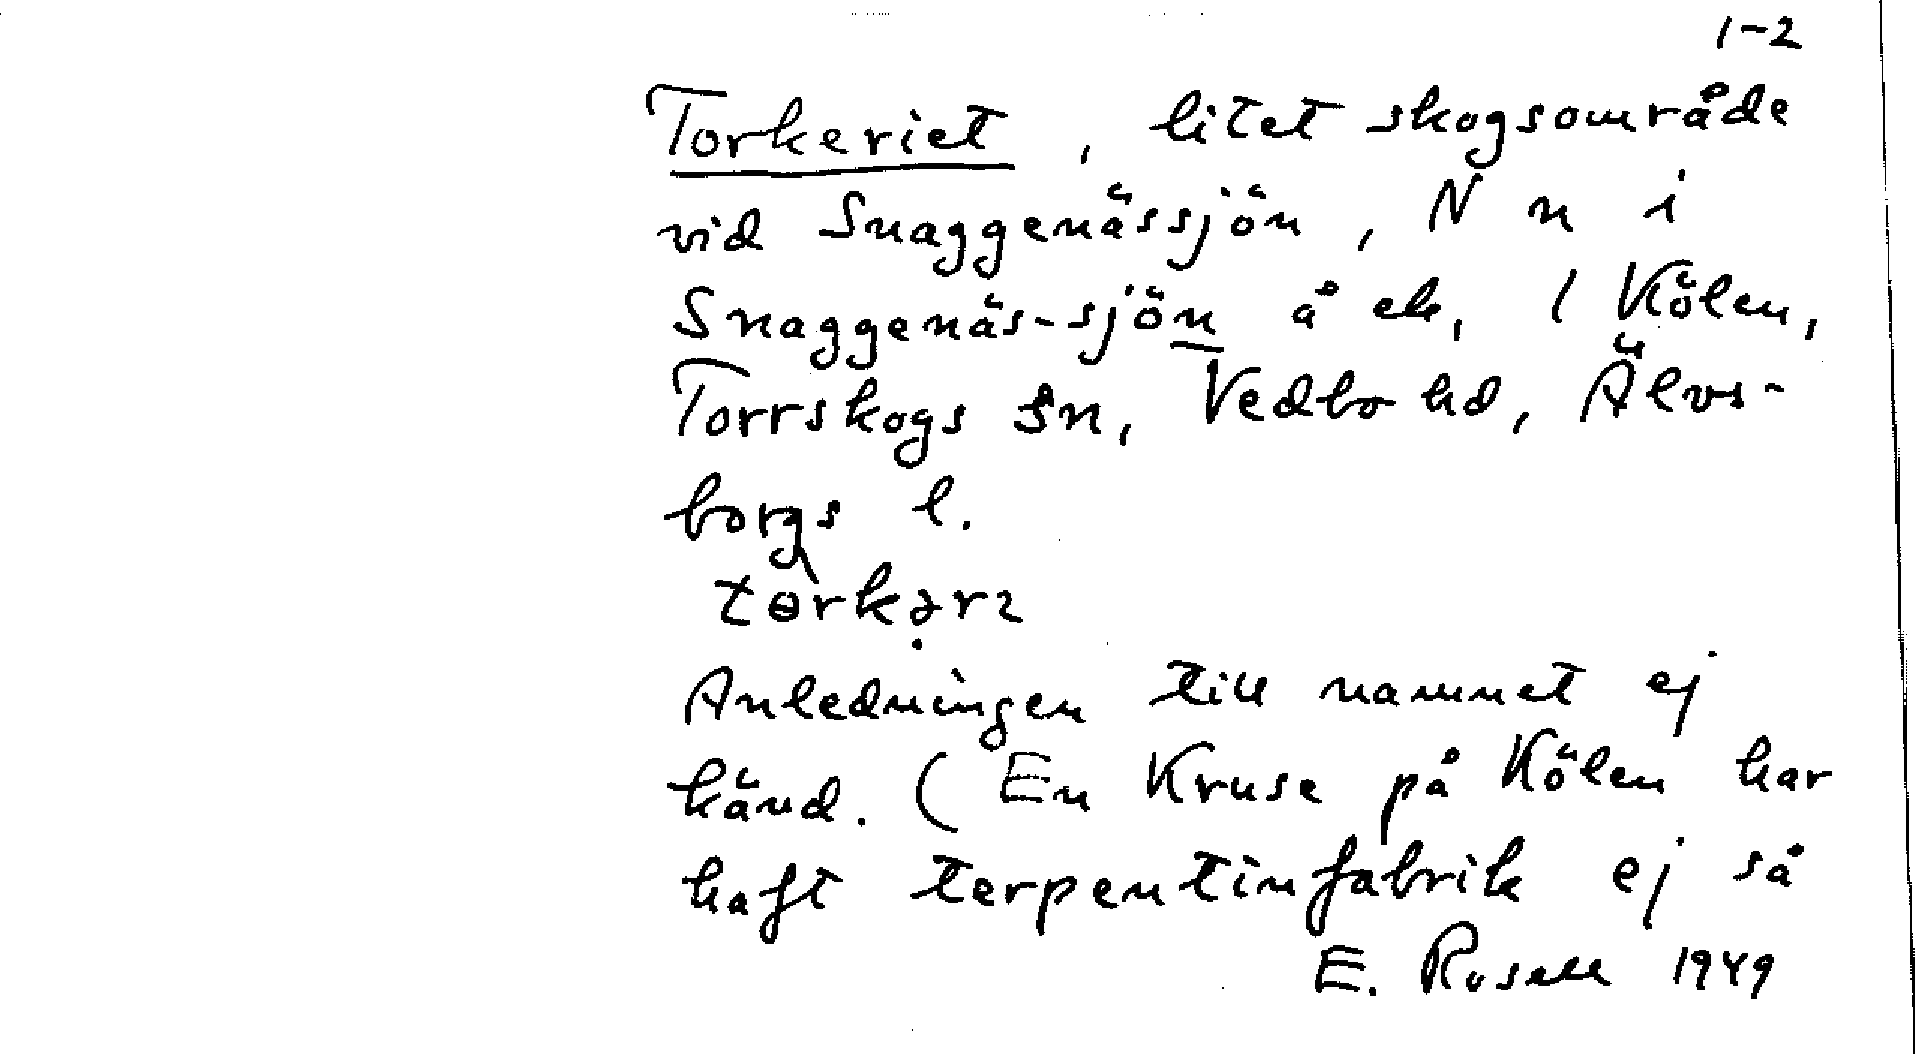 1-2
Torkeriet, litet skogsområde
vid Snaggenässjön, N n i
Snaggenäs-sjön å ek, 1 Kölen,
Torrskogs sn, Vedbo hd, Älvs-
borgs l.
Anledningen till namnet ej
känd. (En Kruse på Kölen har
haft terpentinfabrik ej så
E. Rosell 1949